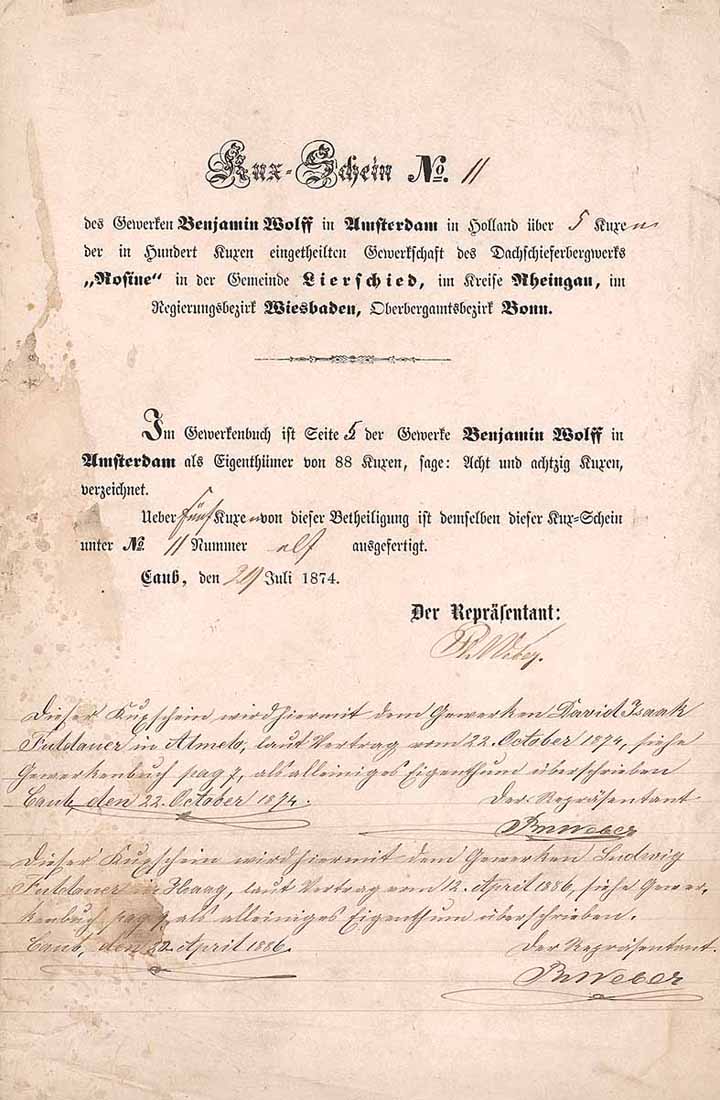 Kux-Schein No. 11
des Gewerken Benjamin Wolff in Amsterdam in Holland über 5 Kuxen
der in Hundert Kuxen eingetheilten Gewerkschaft des Dachschieferbergwerks
„Rosine“ in der Gemeinde Lierschied, im Kreise Rheingau, im
Regierungsbezirk Wiesbaden, Oberbergamtsbezirk Bonn.
Im Gewerkenbuch ist Seite 5 der Gewerke Benjamin Wolff in
Amsterdam als Eigenthümer von 88 Kuxen, sage: Acht und achtzig Kuxen,
verzeichnet.
Ueber fünf Kuxen von dieser Betheiligung ist demselben dieser Kux-Schein
unter No. 11 Nummer elf ausgefertigt.
Caub, den 29 Juli 1874.
Der Repräsentant:
Ph Weber
Dieser Kuxschein wird hiermit dem Gewerken David Isaak
Fuldauer in Almelo, laut Vertrag vom 22. October 1874, siehe
Gewerkenbuch pag 7, als alleiniges Eigenthum überschrieben
Caub, den 22. October 1874.
Der Repräsentant
Ph Weber
Dieser Kuxschein wird hiermit dem Gewerken Ludwig
Fuldauer in Haag, laut Vertrag vom 12. April 1886, siehe Gewer-
kenbuch pag 7, als alleiniges Eigenthum überschrieben.
Caub, den April 1886.
Der Repräsentant.
Ph Weber